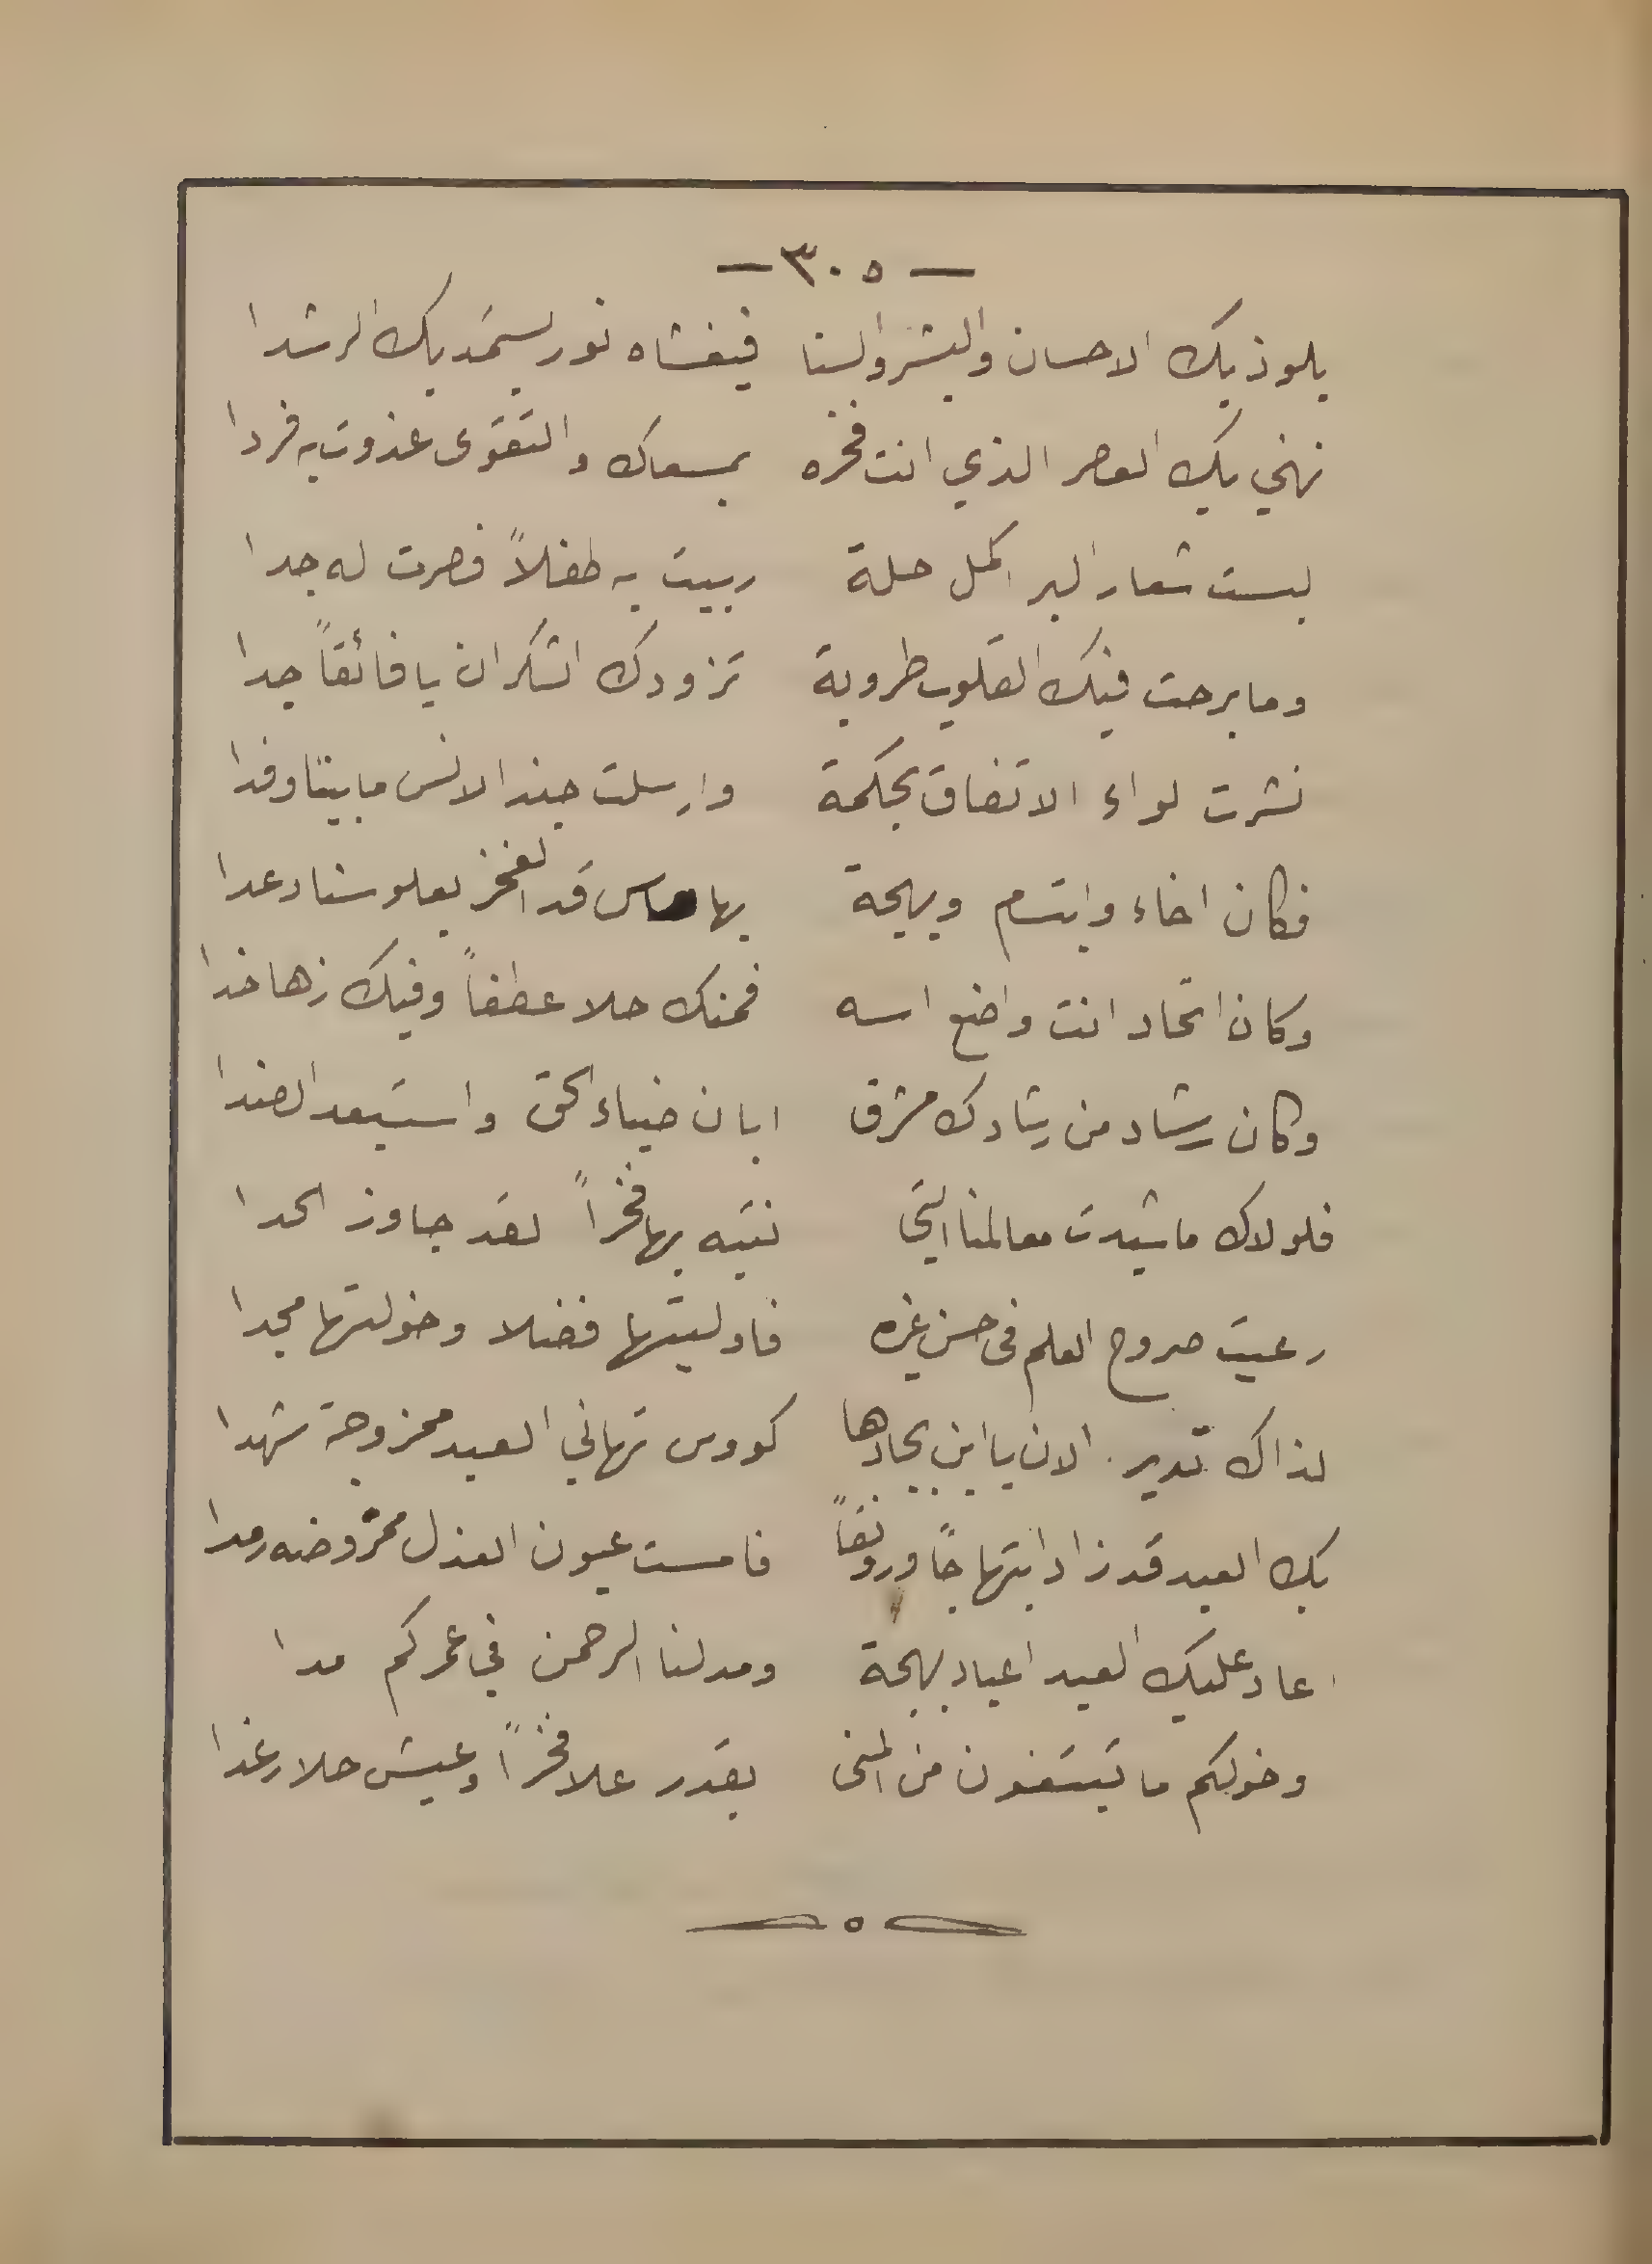 — ٣٠٥ —
يلوذ بك الاحسان والبشر والسنا فيغشاه نور يستمد بك الرشدا
نهني بك العصر الذي انت فخره بمسعاك والتقوى غدوت به فردا
لبست شعار البر اكمل حلة ربيت به طفلاً فصرت له جدا
وما برحت فيك القلوب طروبة تزودك الشكران يا فائقاً جدا
نشرت لواء الاتفاق بحكمة وارسلت جند الانس ما بيننا وفدا
فكان اخاء وابتسام وبهجة بها ماس قد الفخر يعلو سنا وعدا
وكان اتحاد انت واضع اسه فمنك حلا عطفاً وفيك زها خدا
وكان رشاد من رشادك مشرق ابان ضياء الحق واستبعد الضدا
فلولاك ما شيدت معالمنا التي نتيه بها فخراً لقد جاوز الحدا
رعيت صروح العلم في حسن غيره فاوليتها فضلا وخولتها مجدا
لذاك تدير الان يا ابن بجادها كووس تهاني العيد ممزوجة شهدا
بك العيد قد زاد ابتهاجاً ورونقاً فامست عيون العذل محمرة رمدا
اعاد عليك العيد اعياد بهجة ومد لنا الرحمن في عمركم مدا
وخولكم ما تبتغون من المنى بقدر علا فخراً وعيش حلا رغدا